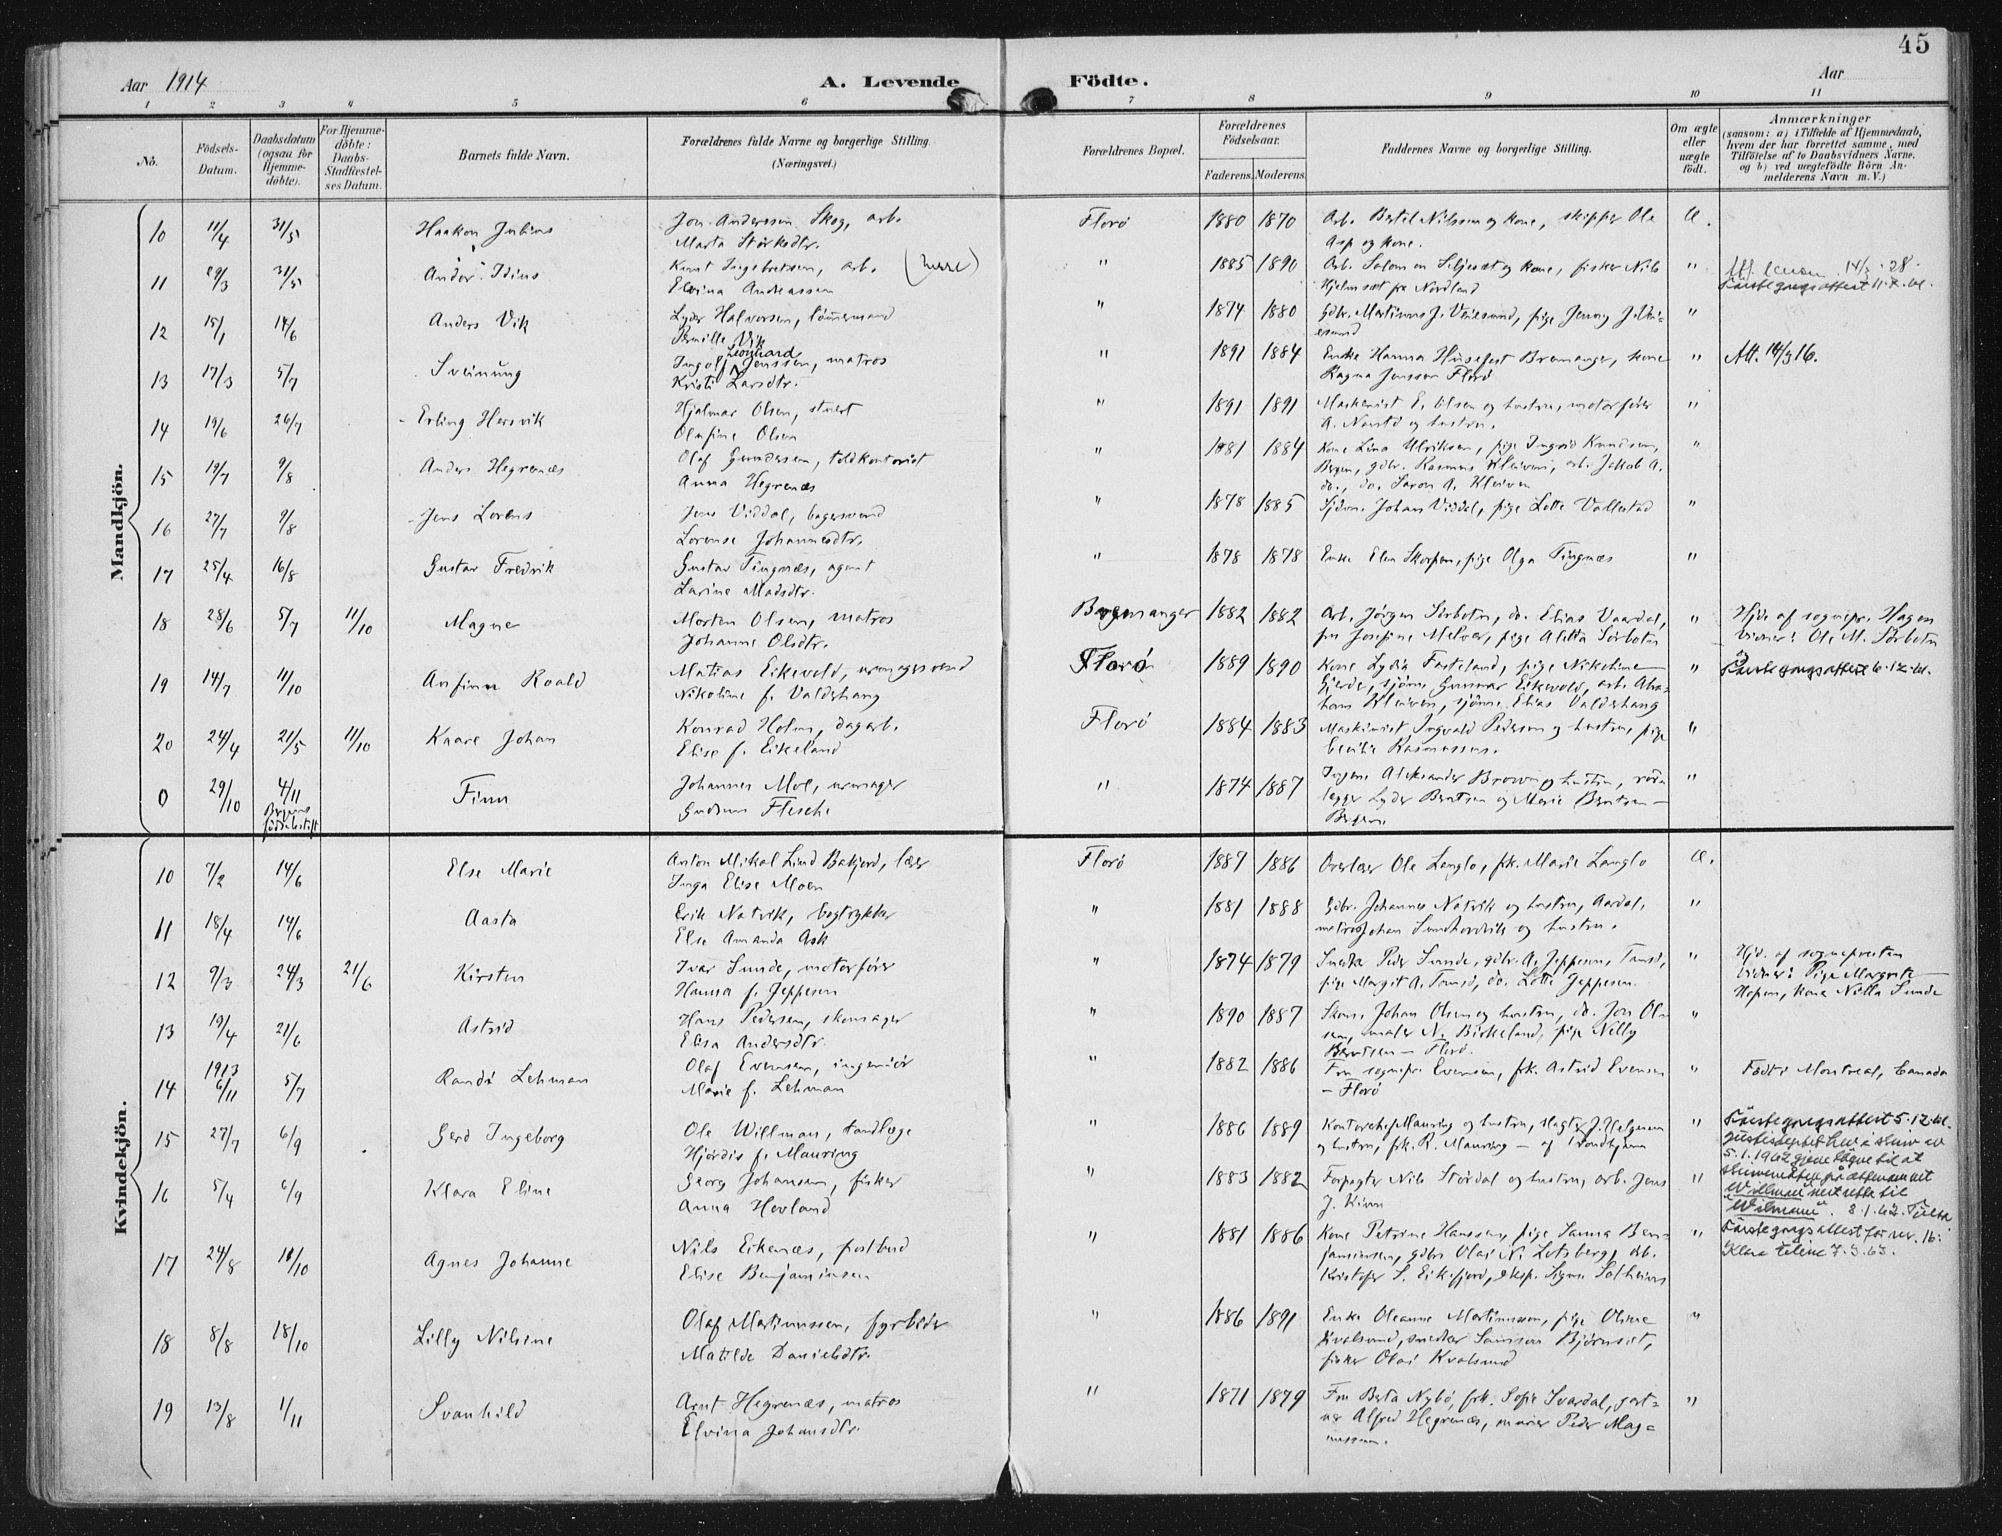 45
Aar 1914
A. Levende Födte.
Aar
1 2 3 4 5 6 7 8 9 10 11
No.
Födsels-Datum.
Daabsdatum (ogsaa for Hjemme-döbte).
For Hjemme-döbte: Daabs-Stadfæstel-ses Datum.
Barnets fulde Navn.
Forældrenes fulde Navne og borgerlige Stilling. (Næringsvei.)
Forældrenes Bopæl.
Forældrenes Födselsaar.
Faderens. Moderens.
Faddernes Navne og borgerlige Stilling.
Om ægte eller uægte födt.
Anmærkninger
(saasom: a) i Tilfælde af Hjemmedaab,
hvem der har forrettet samme, med
Tilföielse af to Daabsvidners Navne,
og b) ved uægtefödte Börn An-
melderens Navn m. V.)
Mandkjön.
10 11/4 31/5 Haakon Julius Jon Anderssen Skog, arb. Florø 1880 1870 Arb. Bertil Nilssen og kone, skipper Ole
Marta Størksdtr. Asp og kone.
11 29/3 31/5 Andor Idius Knut Ingebretsen, arb. " 1885 1890 Arb. Salomon Seljeset og kone, fisker Nils "
Elvina Andreassen Hjelmset fra Nordland
12 15/1 14/6 Anders Vik Lyder Halvorsen, tømmermand " 1874 1880 Gdbr. Martinus J. "
Pernille Vik
13 17/3 5/7 Sveinung Ingolf Leonhard Jenssen, matros " 1891 1884 Enke Hanna Husefest Bremanger, kone " Att. 14/3 16.
Kristi Larsdtr. Ragna Jenssen Florø
14 19/6 26/7 Erling Hersvik Hjalmar Olsen, stuert " 1891 1891 Maskinist E. Olsen og hustru, motorfører "
Olufine Olsen A. Navstd og hustru.
15 19/7 9/8 Anders Hegrenæs Olaf Gundersen, toldkontorist " 1881 1884 Kone Lina Ulriksen, pige Ingrid Knudsen, "
Anna Hegrenæs Bergen, gdbr. Rasmus Kleiven, arb. Jakob A.
do., do. Saron A. Kleiven
16 27/7 9/8 Jens Lorens Jens Viddal, bagersvend " 1878 1885 Sjdm. Johan Viddal, pige Lotte Vallestad "
Lorense Johannesdtr.
17 25/4 16/8 Gustav Fredrik Gustav Tingnæs, agent " 1878 1878 Enke Elen Skorpen, pige Olga Tingnæs "
Larine Madsdtr.
18 28/6 5/7 11/10 Magne Morten Olsen, matros Bremanger 1882 1882 Arb. Jørgen Sørbotn, do. Elias Vaardal, " Hjd. af sognepr. Hagen
Johanne Olsdtr. fru Josefine Melver, pige Aletta Sørbotn Vidner: Ole M. Sørbotn
19 14/7 11/10 Anfinn Roald Matias Eikevold, urmagersvend Florø 1889 1890 Kone Lydia Fasteland, pige Nikoline " Førstegangsattest 6.12.61.
Nikoline f. Valdehaug Gjerde, sjøm. Gunnar Eikevold, arb. Abra-
ham Kleiven, sjøm. Elias Valdehaug
20 24/4 21/5 11/10 Kaare Johan Konrad Holm, dagarb. Florø 1884 1883 Maskinist Ingvald Pedersen og hustru, pige "
Elise f. Eikeland Cecilie Rasmussen.
0 29/10 4/11 Finn Johannes Mol, urmager " 1874 1887 Ingeni. Aleksander Brown og hustru, rør- "
Bergens fødselsstift Gudrun Flesche lægger Lyder Berntsen og Marie Berntsen —
Bergen.
Kvindekjön.
10 7/2 14/6 Else Marie Anton Mikal Lind Bakjord, lærer Florø 1887 1886 Overlærer Ole Langlo, frk. Marie Langlo
Inga Elise Moen
11 18/4 14/6 Aasta Erik Natvik, bogtrykker " 1881 1888 Gdbr. Johannes Natvik og hustru, Aardal, "
Else Amanda Ask matros Johan Sundhordvik og hustru.
12 9/3 24/3 21/6 Kirsten Ivar Sunde, motorfører " 1874 1879 Snedk. Peder Sunde, gdbr. A. Jeppesen, Tansø, " Hjd. af sognepresten
Hanna f. Jeppesen pige Margit A. Tansø, do. Lotte Jeppesen. Vidner: Pige Margrete
Hopen, kone Nilla Sunde
13 19/4 21/6 Astrid Hans Pedersen, skomager " 1890 1887 Skom. Johan Olsen og hustru, do. Jon Ol- "
Elisa Andersdtr. sen, maler N. Birkeland, pige Nelly
Berntsen — Florø.
14 1913 6/11 5/7 Randi Lehman Olaf Evensen, ingeniør " 1882 1886 Fru sognepr. Evensen, frk. Astrid Evensen " Født i Montreal, Canada
Marie f. Lehman — Florø
15 27/7 6/9 Gerd Ingeborg Ole Willman, tandlæge " 1886 1889 Kontorchef Mauring og hustru, slagter J. Helgesen " Førstegangsattest 5.12.61.
Hjørdis f. Mauring og hustru, frk. R. Mauring — af Trondhjem Justisdeptet har i skriv av
5.1.1962 gjeve løyve til at
skrivemåten på etternamnet
Willman vert retta til
"Wilmann". 8.1.62.
16 5/4 6/9 Klara Eline Georg Johansen, fisker " 1883 1882 Forpagter Nils Stordal og hustru, arb. Jens "
Anna Hovland J. Kinn
17 24/8 11/10 Agnes Johanne Nils Eikenæs, postbud " 1881 1886 Kone Petrine Hanssen, pige Sanna Ben- " Førstegangsattest for nr. 16:
Elise Benjaminsen jaminsen, gdbr Olai N. Lotsberg, arb. Klara Eline 7.3.63.
Kristofer S. Eikefjord, eksp. Signe Solheim
18 8/8 18/10 Lilly Nilsine Olaf Martinussen, fyrbøder " 1886 1891 Enke Oleanne Martinussen, pige Oline "
Matilde Danielsdtr. Kvalsund, snedker Samson Bjørnset,
fisker Olai Kvalsund
19 13/8 1/11 Svanhild Arnt Hegrenæs, matros " 1871 1879 Fru Berta Nybø, frk. Sofie Svardal, gart- "
Elvina Johansdtr. ner Alfred Hegrenæs, murer Peder Mag-
nussen.